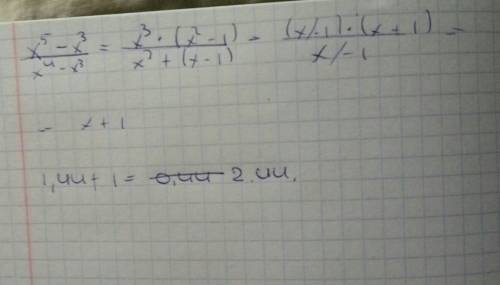 x⁵ - x³ / x⁴ - x³ = x³ · (x² - 1) / x³ + (x - 1) = (x/-1) · (x + 1) / x/-1 =
= x + 1
1,44 + 1 = 0,44 2.44.